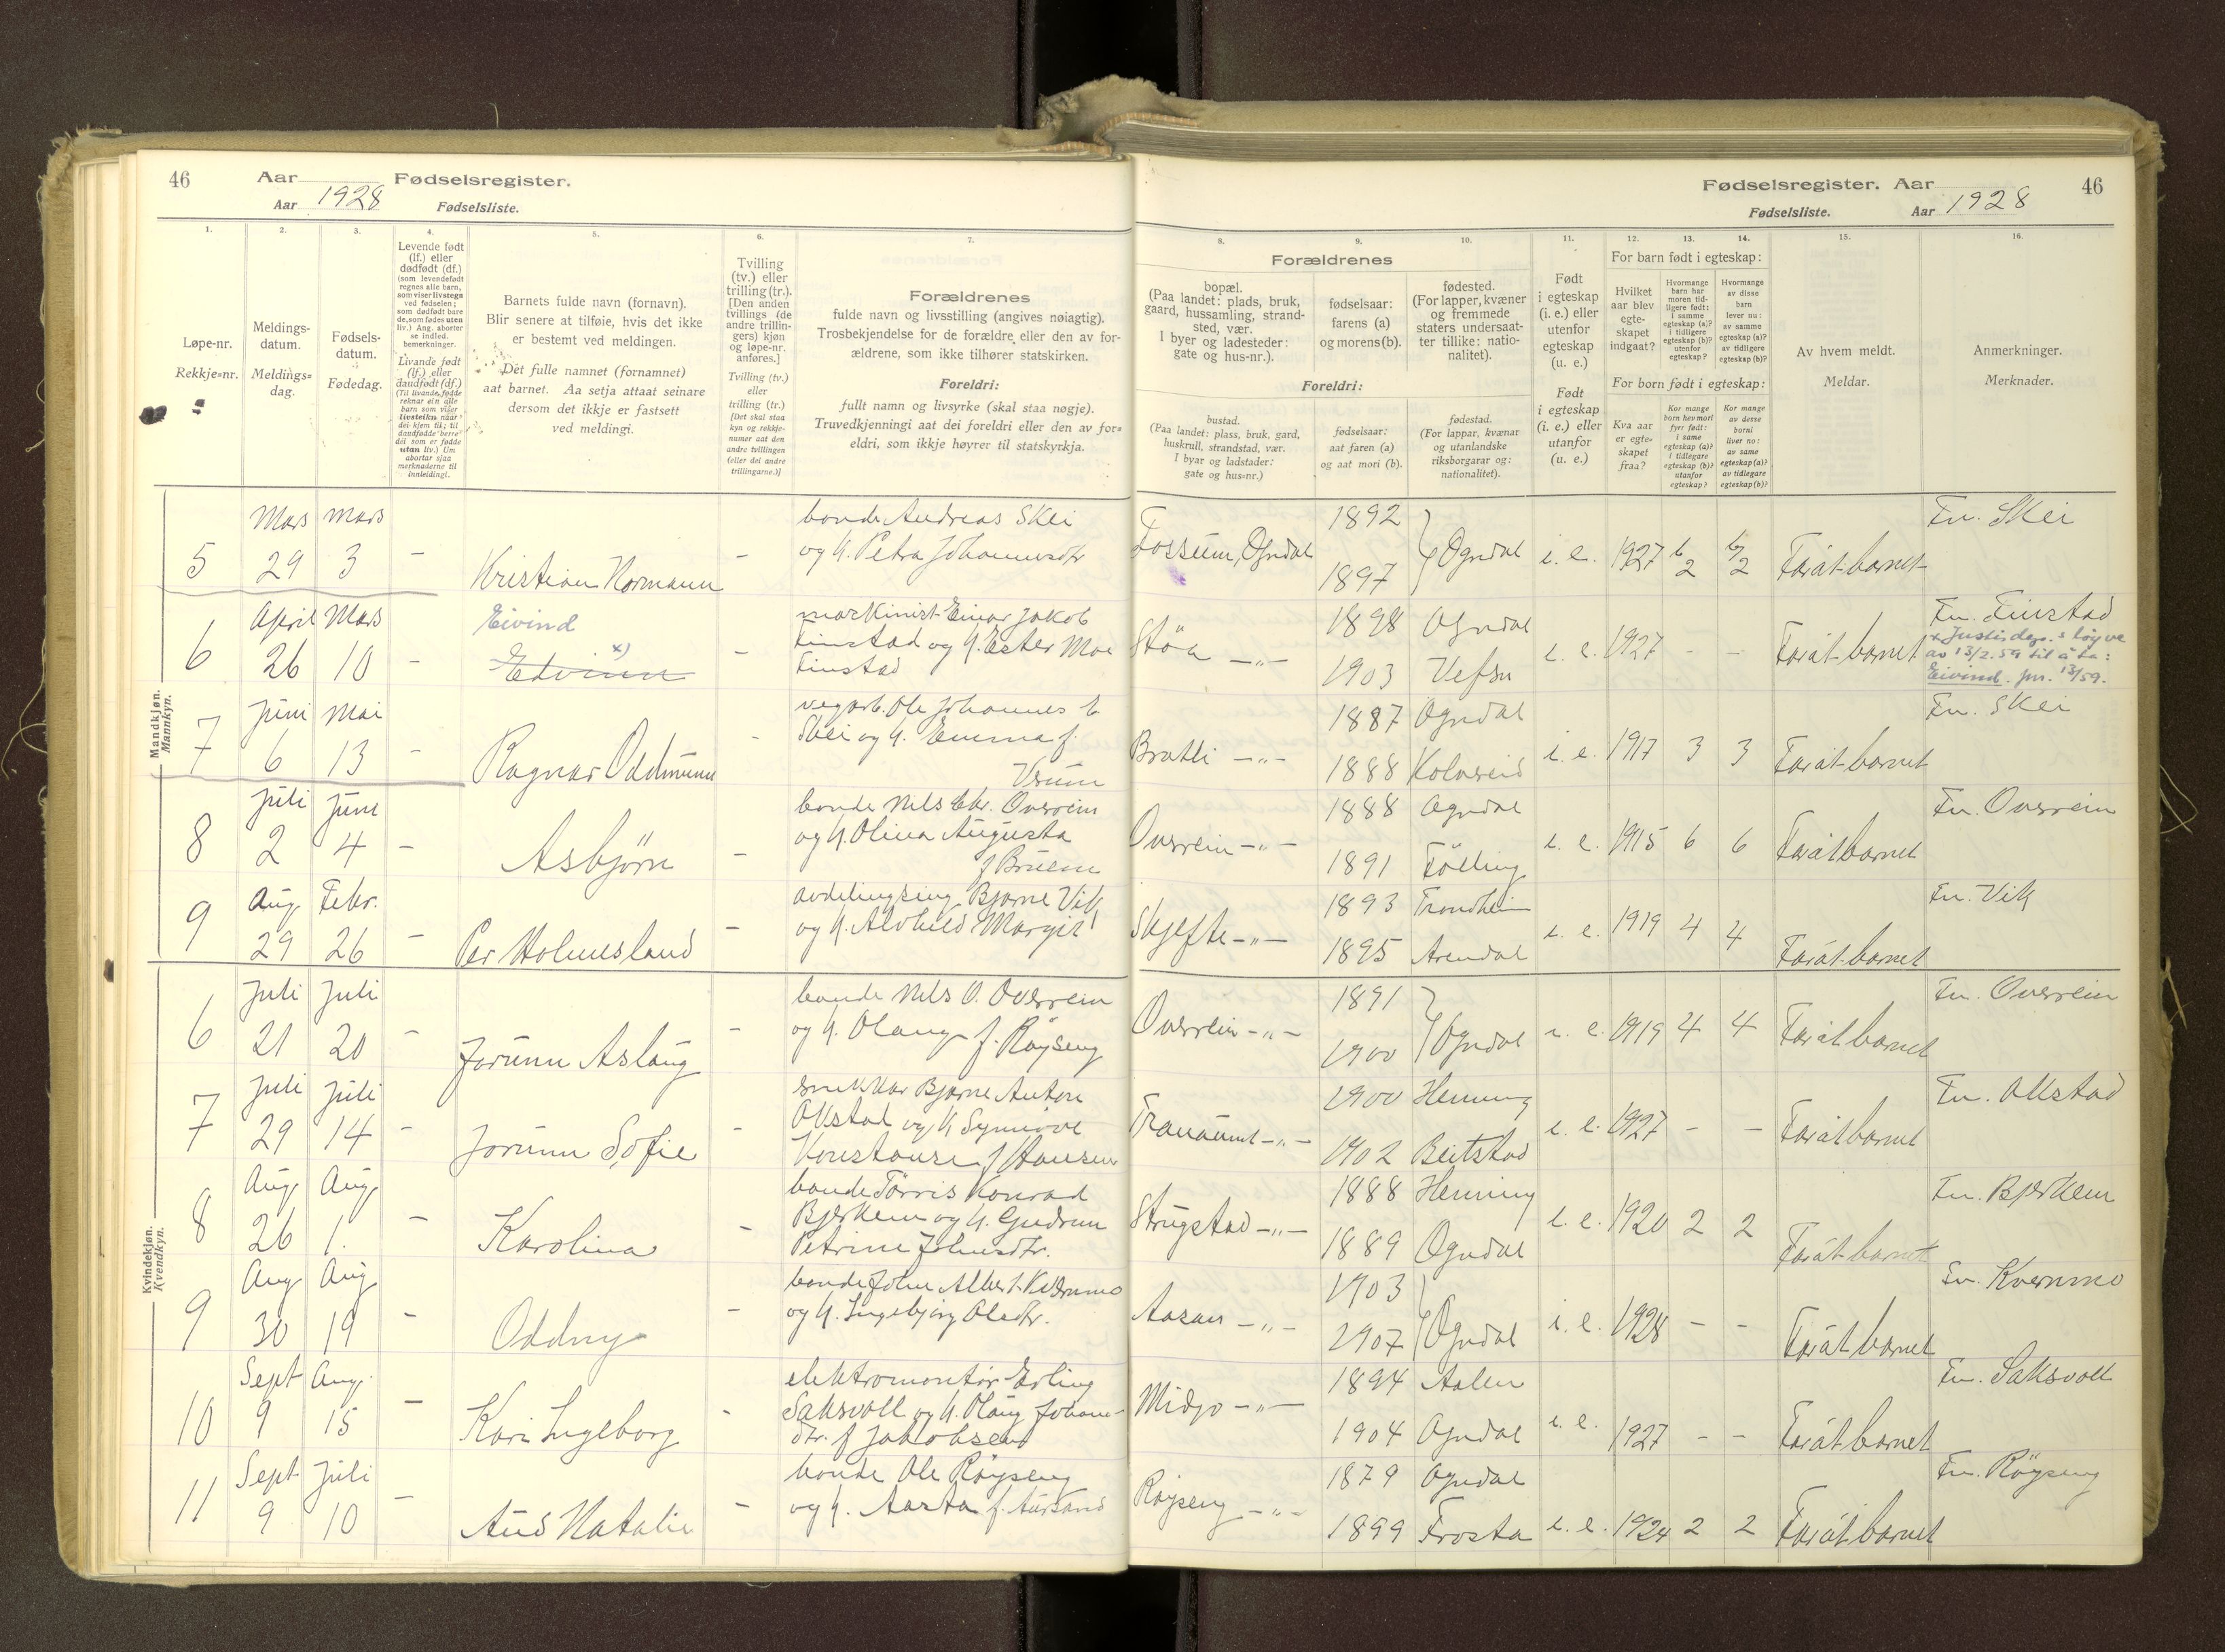 46 Aar Fødselsregister.
Aar 1928 Fødselsliste.
Fødselsregister. Aar 46
Fødselsliste. Aar 1928
1. 2. 3. 4. 5. 6. 7.
Løpe-nr.
Rekkje-nr.
Meldings-
datum.
Meldings-
dag.
Fødsels-
datum.
Fødedag.
Levende født
(lf.) eller
dødfødt (df.)
(som levendefødt
regnes alle barn,
som viser livstegn
ved fødselen;
som dødfødt bare
de, som fødes uten
liv.) Ang. aborter
se indled.
bemerkninger.
Livande født
(lf.) eller
daudfødt (df.)
(Til livande fødde
reknar ein alle
barn som viser
livsteikn naar
dei kjem til; til
daudfødde berre
dei som er fødde
utan liv.) Um
abortar sjaa
merknaderne til
innleidingi.
Barnets fulde navn (fornavn).
Blir senere at tilføie, hvis det ikke
er bestemt ved meldingen.
Det fulle namnet (fornamnet)
aat barnet. Aa setja attaat seinare
dersom det ikkje er fastsett
ved meldingi.
Tvilling
(tv.) eller
trilling (tr.).
[Den anden
tvillings (de
andre trillin-
gers) kjøn
og løpe-nr.
anføres.]
Tvilling (tv.)
eller
trilling (tr.)
[Det skal staa
kyn og rekkje-
numer aat den
andre tvillingen
(eller dei andre
trillingarne.)]
Forældrenes
fulde navn og livsstilling (angives nøiagtig).
Trosbekjendelse for de forældre eller den av for-
ældrene, som ikke tilhører statskirken.
Foreldri:
fullt namn og livsyrke (skal staa nøgje).
Truvedkjenningi aat dei foreldri eller den av for-
eldri, som ikkje høyrer til statskyrkja.
8. 9. 10. 11. 12. 13. 14. 15. 16.
Forældrenes
bopæl.
(Paa landet: plads, bruk,
gaard, hussamling, strand-
sted, vær.
I byer og ladesteder:
gate og hus-nr.).
fødselsaar:
farens (a)
og morens (b).
fødested.
(For lapper, kvæner
og fremmede
staters undersaat-
ter tillike: natio-
nalitet).
Foreldri:
bustad.
(Paa landet: plass, bruk, gard,
huskrull, strandstad, vær.
I byar og ladstader:
gate og hus-nr.)
fødselsaar:
aat faren (a)
og aat mori (b).
fødestad.
(For lappar, kvænar
og utanlandske
riksborgarar og:
nationalitet).
Født
i egteskap
(i. e.) eller
utenfor
egteskap
(u. e.)
Født
i egteskap
(i. e.) eller
utanfor
(u. e.)
For barn født i egteskap:
Hvilket
aar blev
egte-
skapet
indgaat?
Hvormange
barn har
moren tid-
ligere født:
i samme
egteskap (a)?
i tidligere
egteskap (b)?
utenfor
egteskap?
Hvormange
av disse
barn
lever nu:
av samme
egteskap (a)?
av tidligere
egteskap (b)?
For born født i egteskap:
Kva aar
er egte-
skapet
fraa?
Kor mange
born hev mori
fyrr født:
i same
egteskap (a)?
i tidlegare
egteskap (b)?
utanfor
egteskap?
Kor mange
av desse
borni
liver no:
av same
egteskap (a)?
av tidlegare
egteskap (b)?
Av hvem meldt.
Meldar.
Anmerkninger.
Merknader.
Mandkjøn.
Mannkyn.
Mars mars bonde Andreas Skei 1892 Fn. Skei
5 29 3 - Kristian Normann - og h. Petra Johannesdtr Fossum, Ogndal 1897 Ogndal i. e. 1927 b 2 b 2 Far åt barnet
April Mars Eivind maskinist Einar Jakob 1898 Ogndal Fn. Finstad
6 26 10 - Edvinn x) - Finstad og h. Ester Moe Støa -"- 1903 Vefsn i. e. 1927 - - Far åt barnet
Finstad
x Justisdep.s løyve
av 13/2.59 til å ta:
Eivind. jnr. 13/59.
Juni Mai vegarb. Ole Johannes 1887 Ogndal Fn. Skei
7 6 13 - Ragnar Oddmunn - Skei og h. Emma f. Bratli -"- 1888 Kolvereid i. e. 1917 3 3 Far åt barnet
Juli Juni bonde Nils Chr. Overrein 1888 Ogndal Fn. Overrein
8 2 4 - Asbjørn - og h. Olina Augusta Overrein -"- 1891 Følling i. e. 1915 6 6 Far åt barnet
f Bruem
Aug Febr. avdelingsing Bjarne Vik 1893 Trondheim Fn. Vik
9 29 26 - Per Holmesland - og h. Alvhild Margit Skjefte -"- 1895 Arendal i. e. 1919 4 4 Far åt barnet
Kvindekjøn.
Kvendkyn.
Juli Juli bonde Nils O. Overrein 1891 Fn. Overrein
6 21 20 - Jorunn Aslaug - og h. Olaug f. Røyseng Overrein -"- 1900 Ogndal i. e. 1919 4 4 Far åt barnet
Juli Juli snekkar Bjarne Anton 1900 Henning Fn. Okstad
7 29 14 - Jorunn Sofie - Okstad og h Synnøve Tranamt -"- 1902 Beitstad i. e. 1927 - - Far åt barnet
Konstanse f Hansen
Aug Aug bonde Tørris Konrad 1888 Henning Fn. Bjerkem
8 26 1. - Karolina - Bjerkem og h. Gudrun Strugstad -"- 1889 Ogndal i. e. 1920 2 2 Far åt barnet
Petrine Johnsdtr.
Aug Aug bonde John Albert Kvernmo 1903 Fn. Kvernmo
9 30 19 - Oddny - og h. Ingebjørg Olsdtr. Aasan -"- 1907 Ogndal i. e. 1928 - - Far åt barnet
Sept Aug. elektromontør Erling 1894 Aalen Fn. Saksvoll
10 9 15 - Kari Ingeborg - Saksvoll og h. Olaug Johans- Midjo -"- 1904 Ogndal i. e. 1927 - - Far åt barnet
dtr. f Jakobsen
Sept Juli bonde Ole Røyseng 1879 Ogndal Fn. Røyseng
11 9 10 - Aud Natalie - og h. Aasta f. Aursand Røyseng -"- 1899 Frosta i. e. 1924 2 2 Far åt barnet